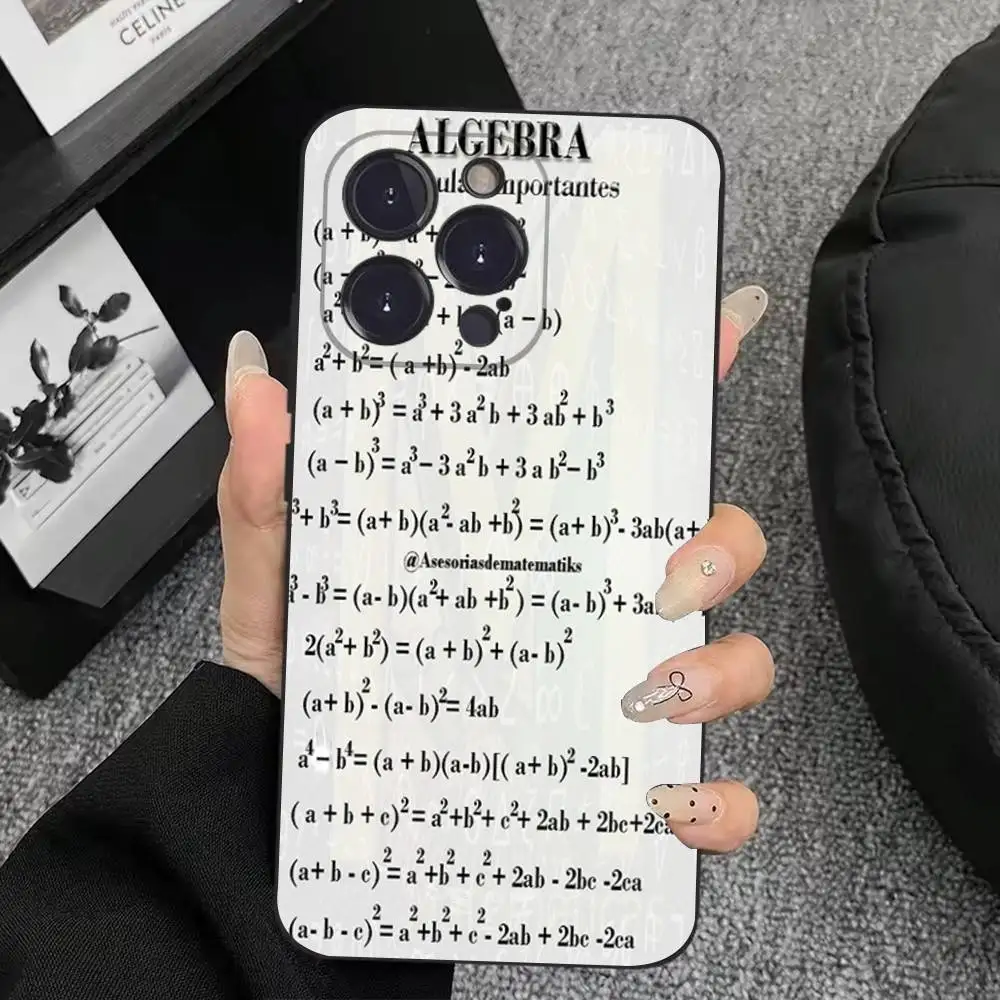 CELINE
PARIS
ALGEBRA
mportantes
a - b)
a²+ b²= ( a +b)²- 2ab
(a + b)³ = a³+ 3 a²b + 3 ab² + b³
(a - b)³= a³- 3 a²b + 3 a b²- b³
³+ b³= (a+ b)(a²- ab +b²) = (a+ b)³- 3ab(a+
@Asesoriasdematematiks
³ - b³= (a- b)(a²+ ab +b²) = (a- b)³+ 3a
2(a²+ b²) = (a + b)²+ (a- b)²
(a+ b)²- (a- b)²= 4ab
a⁴- b⁴= (a + b)(a-b)[( a+ b)² -2ab]
( a + b + c)²= a²+b²+ c²+ 2ab + 2bc+2c
(a+ b - c)²= a²+b²+ c²+ 2ab - 2bc -2ca
(a- b - c)²= a²+b²+ c²- 2ab + 2bc -2ca